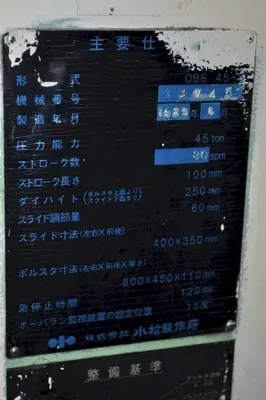 主要仕
形式 OBS 45
機械番号
製造年月 年 6 月
圧力能力 45 ton
ストローク数 spm
ストローク長さ 100 mm
ダイハイト (ボルスタ上面より スライド下面まで) 250 mm
スライド調節量 60 mm
スライド寸法(左右×前後)
400×350 mm
ボルスタ寸法(左右×前後×厚さ)
800×450×110 mm
急停止時間 120
オーバラン監視装置の設定位置 15度
株式会社 小松製作所
整備基準